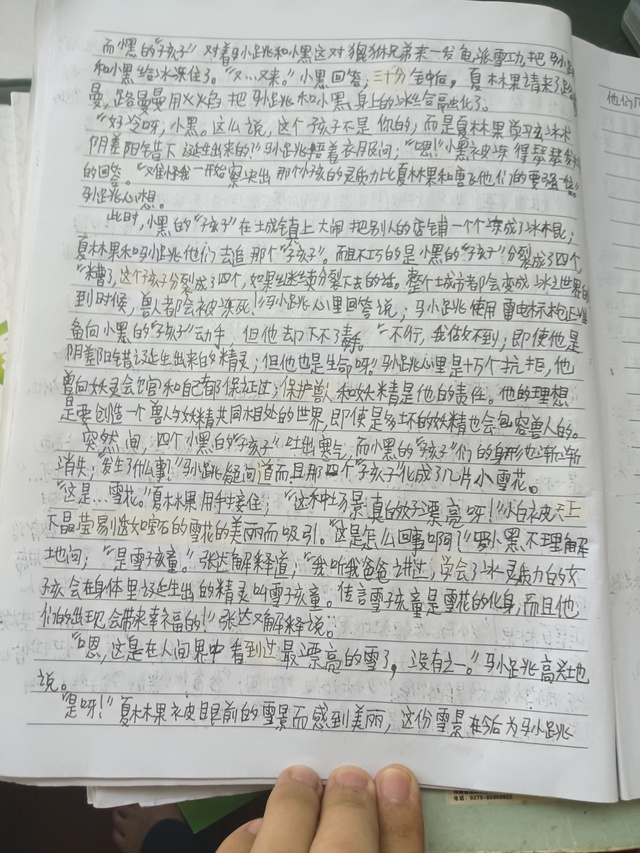 而小黑的"孩子"对着马小跳和小黑这对猴狲兄弟来一发鱼派雪功,把马小跳
和小黑给冰冻住了。"又…又来。"小黑回答;三十分钟后,夏林果请来了路
曼,路曼曼用火焰把马小跳和小黑身上的冰给融化了。
"好冷呀;小黑。这么说,这个孩子不是你的,而是夏林果学习玄冰术
阴差阳错下诞生出来的?"马小跳捂着衣服问;"嗯!"小黑被冻得瑟瑟发抖
的回答。"难怪我一开始察觉出那个小孩的灵质力比夏林果和雪飞他们的要强
马小跳心想。
此时,小黑的"孩子"在土成镇上大闹把别人的店铺一个个冻成了冰棍;
夏林果和马小跳他们去追那个"孩子"。而且不巧的是小黑的"孩子"分裂成了四个,
"糟了,这个孩子分裂成了四个,如果继续分裂下去的话。整个城市都会变成冰之世界的
到时候,兽人都会被冻死!"马小跳心里回答说;马小跳使用雷电标枪正准
备向小黑的"孩子"动手,但他却下不了毒手。"不行,我做不到;即使他是
阴差阳错诞生出来的精灵;但他也是生命呀。"马小跳心里是十万个抗拒,他
曾向妖灵会馆和自己都保证过;保护兽人和妖精是他的责任。他的理想
是要创造一个兽人与妖精共同相处的世界,即使是多坏的妖精也会包容兽人的。
突然间,四个小黑的"孩子"吐出寒气,而小黑的"孩子"们的身形也渐渐
消失;"发生了什么事?"马小跳疑问道而且那四个"孩子"化成了几片小雪花。
"这是…雪花。"夏林果用手接住;"这种场景真的好漂亮呀!"小白被天上
下晶莹剔透如宝石的雪花的美丽而吸引。"这是怎么回事啊?"罗小黑不理解
地问;"是雪孩童。"张达解释道;"我听我爸爸讲过,学会了冰灵质力的女
孩会在身体里诞生出的精灵叫雪孩童。传言雪孩童是雪花的化身,而且他
们的出现会带来幸福的!"张达又解释说。
"嗯,这是在人间界中看到过最漂亮的雪了,没有之一。"马小跳高兴地
说。
"是呀!"夏林果被眼前的雪景而感到美丽,这份雪景在今后为马小跳
他们